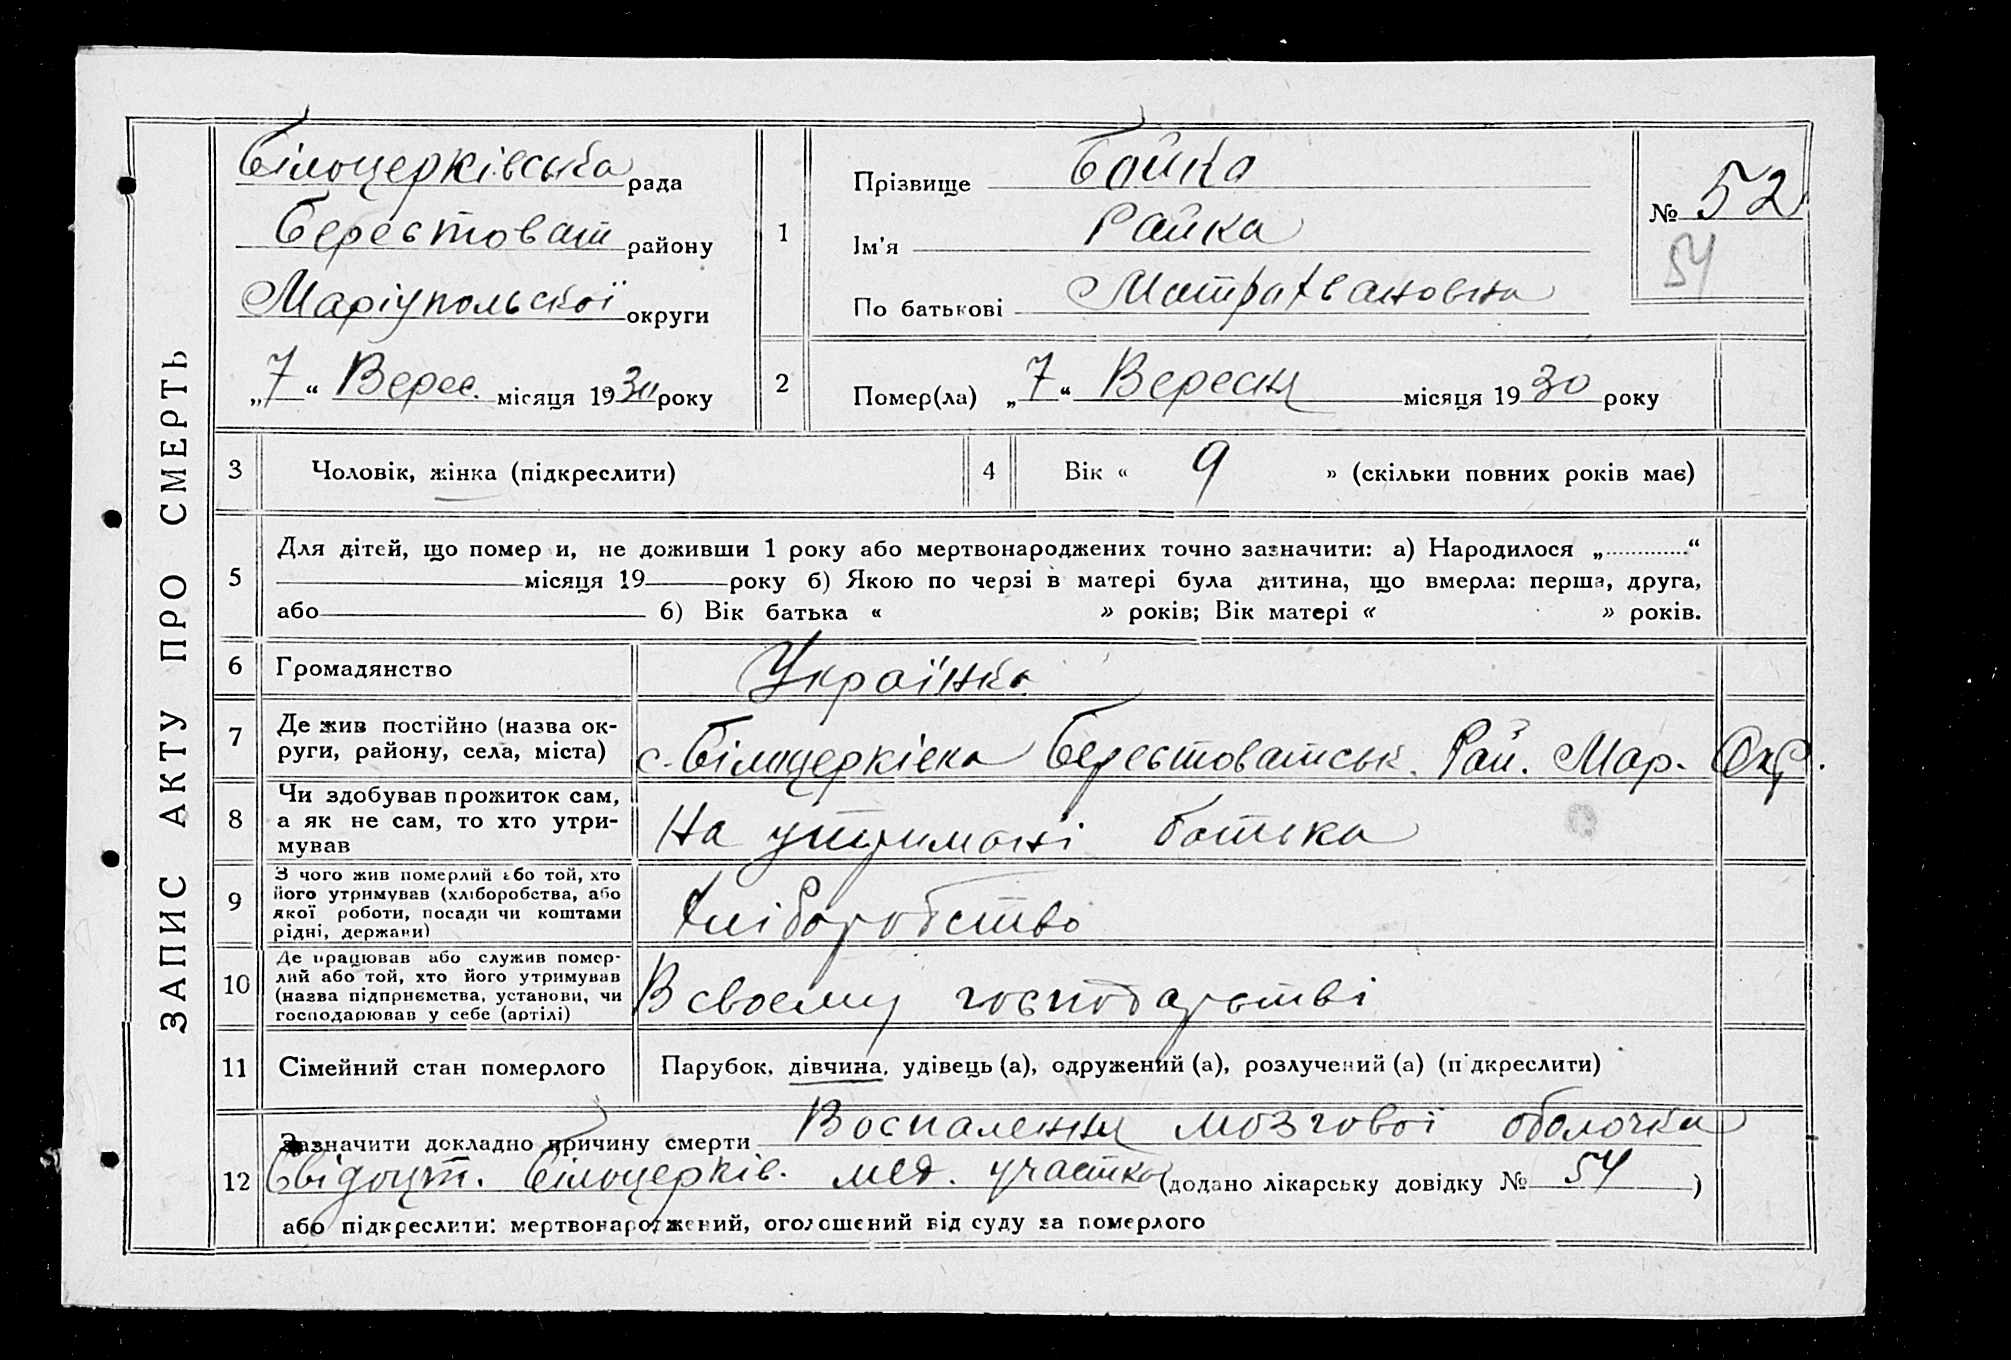 ЗАПИС АКТУ ПРО СМЕРТЬ
Білоцерківська рада
Берестоват району
Маріупольської округи
„7“ Верес. місяця 1930 року
1
Прізвище Бойка
Ім'я Райка
По батькові
№ 52
54
2
Помер(ла) „7“ Вересня місяця 1930 року
3 Чоловік, жінка (підкреслити)
4 Вік « 9 » (скільки повних років має)
5
Для дітей, що помер и, не доживши 1 року або мертвонароджених точно зазначити: а) Народилося „ “
місяця 19 року б) Якою по черзі в матері була дитина, що вмерла: перша, друга,
або б) Вік батька « » років; Вік матері « » років.
6 Громадянство Українка
7 Де жив постійно (назва ок-
руги, району, села, міста)
с. Білоцерківка Берестоватськ. Рай. Мар. Окр.
8 Чи здобував прожиток сам,
а як не сам, то хто утри-
мував
На утримані батька
9 З чого жив померлий або той, хто
його утримував (хліборобства, або
якої роботи, посади чи коштами
рідні, держави)
Хліборобство
10 Де працював або служив помер-
лий або той, хто його утримував
(назва підприємства, установи, чи
господарював у себе (артілі)
В своєму господарстві
11 Сімейний стан померлого
Парубок, дівчина, удівець (а), одружений (а), розлучений (а) (підкреслити)
12 Зазначити докладно причину смерти Воспалення мозгової оболочки
Свідоцт. Білоцерків. мед. участка (додано лікарську довідку № 54 )
або підкреслити: мертвонароджений, оголошений від суду за померлого